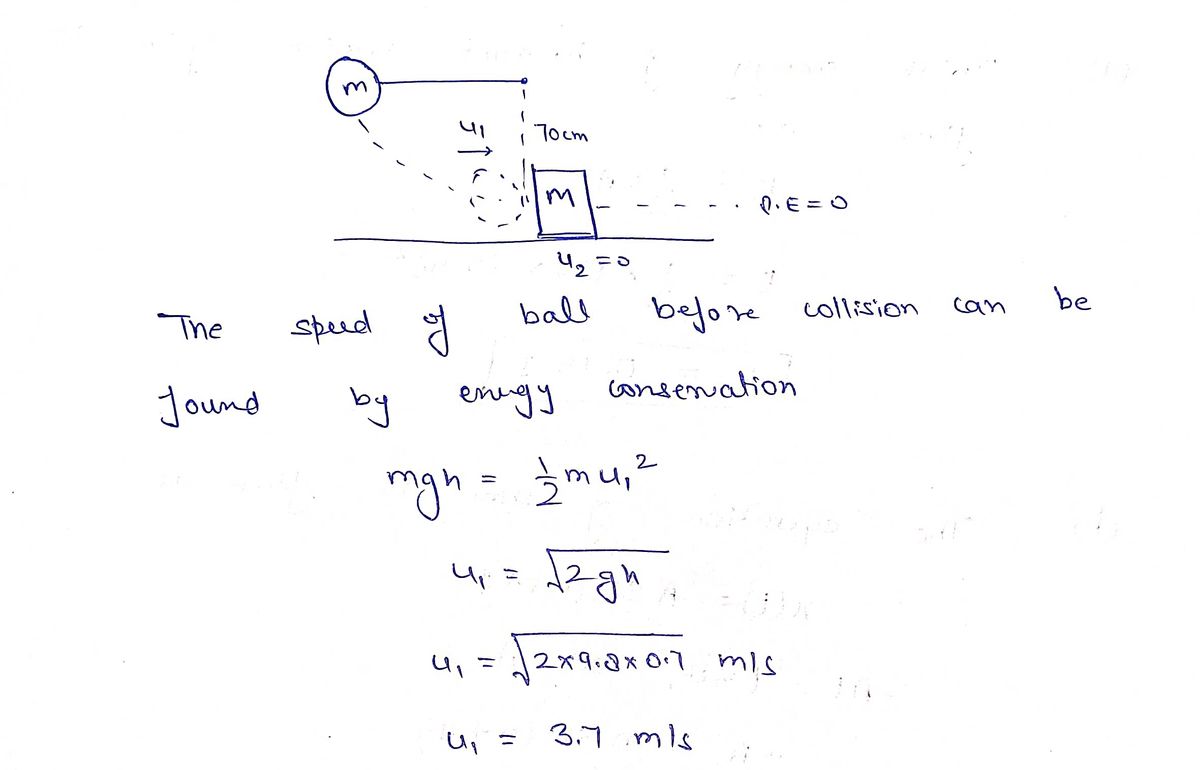 m
u₁
70cm
m
P.E = 0
u₂ = 0
The speed of ball before collision can be
found by energy conservation
mgh = 1/2 m u₁²
u₁ = √2gh
u₁ = √2×9.8×0.7 m/s
u₁ = 3.7 m/s